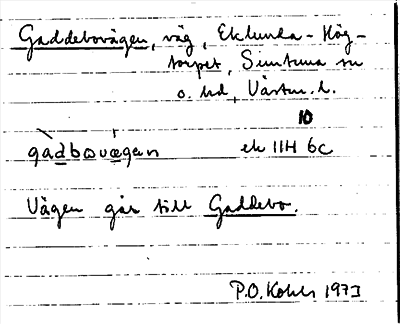 Gaddebovägen, väg, Eklunda - Hög-
torpet, Simtuna sn
o. hd, Västm. l.
10
gàdbovǽgan ek 11H 6c
Vägen går till Gaddebo.
P.O. Kohls 1973